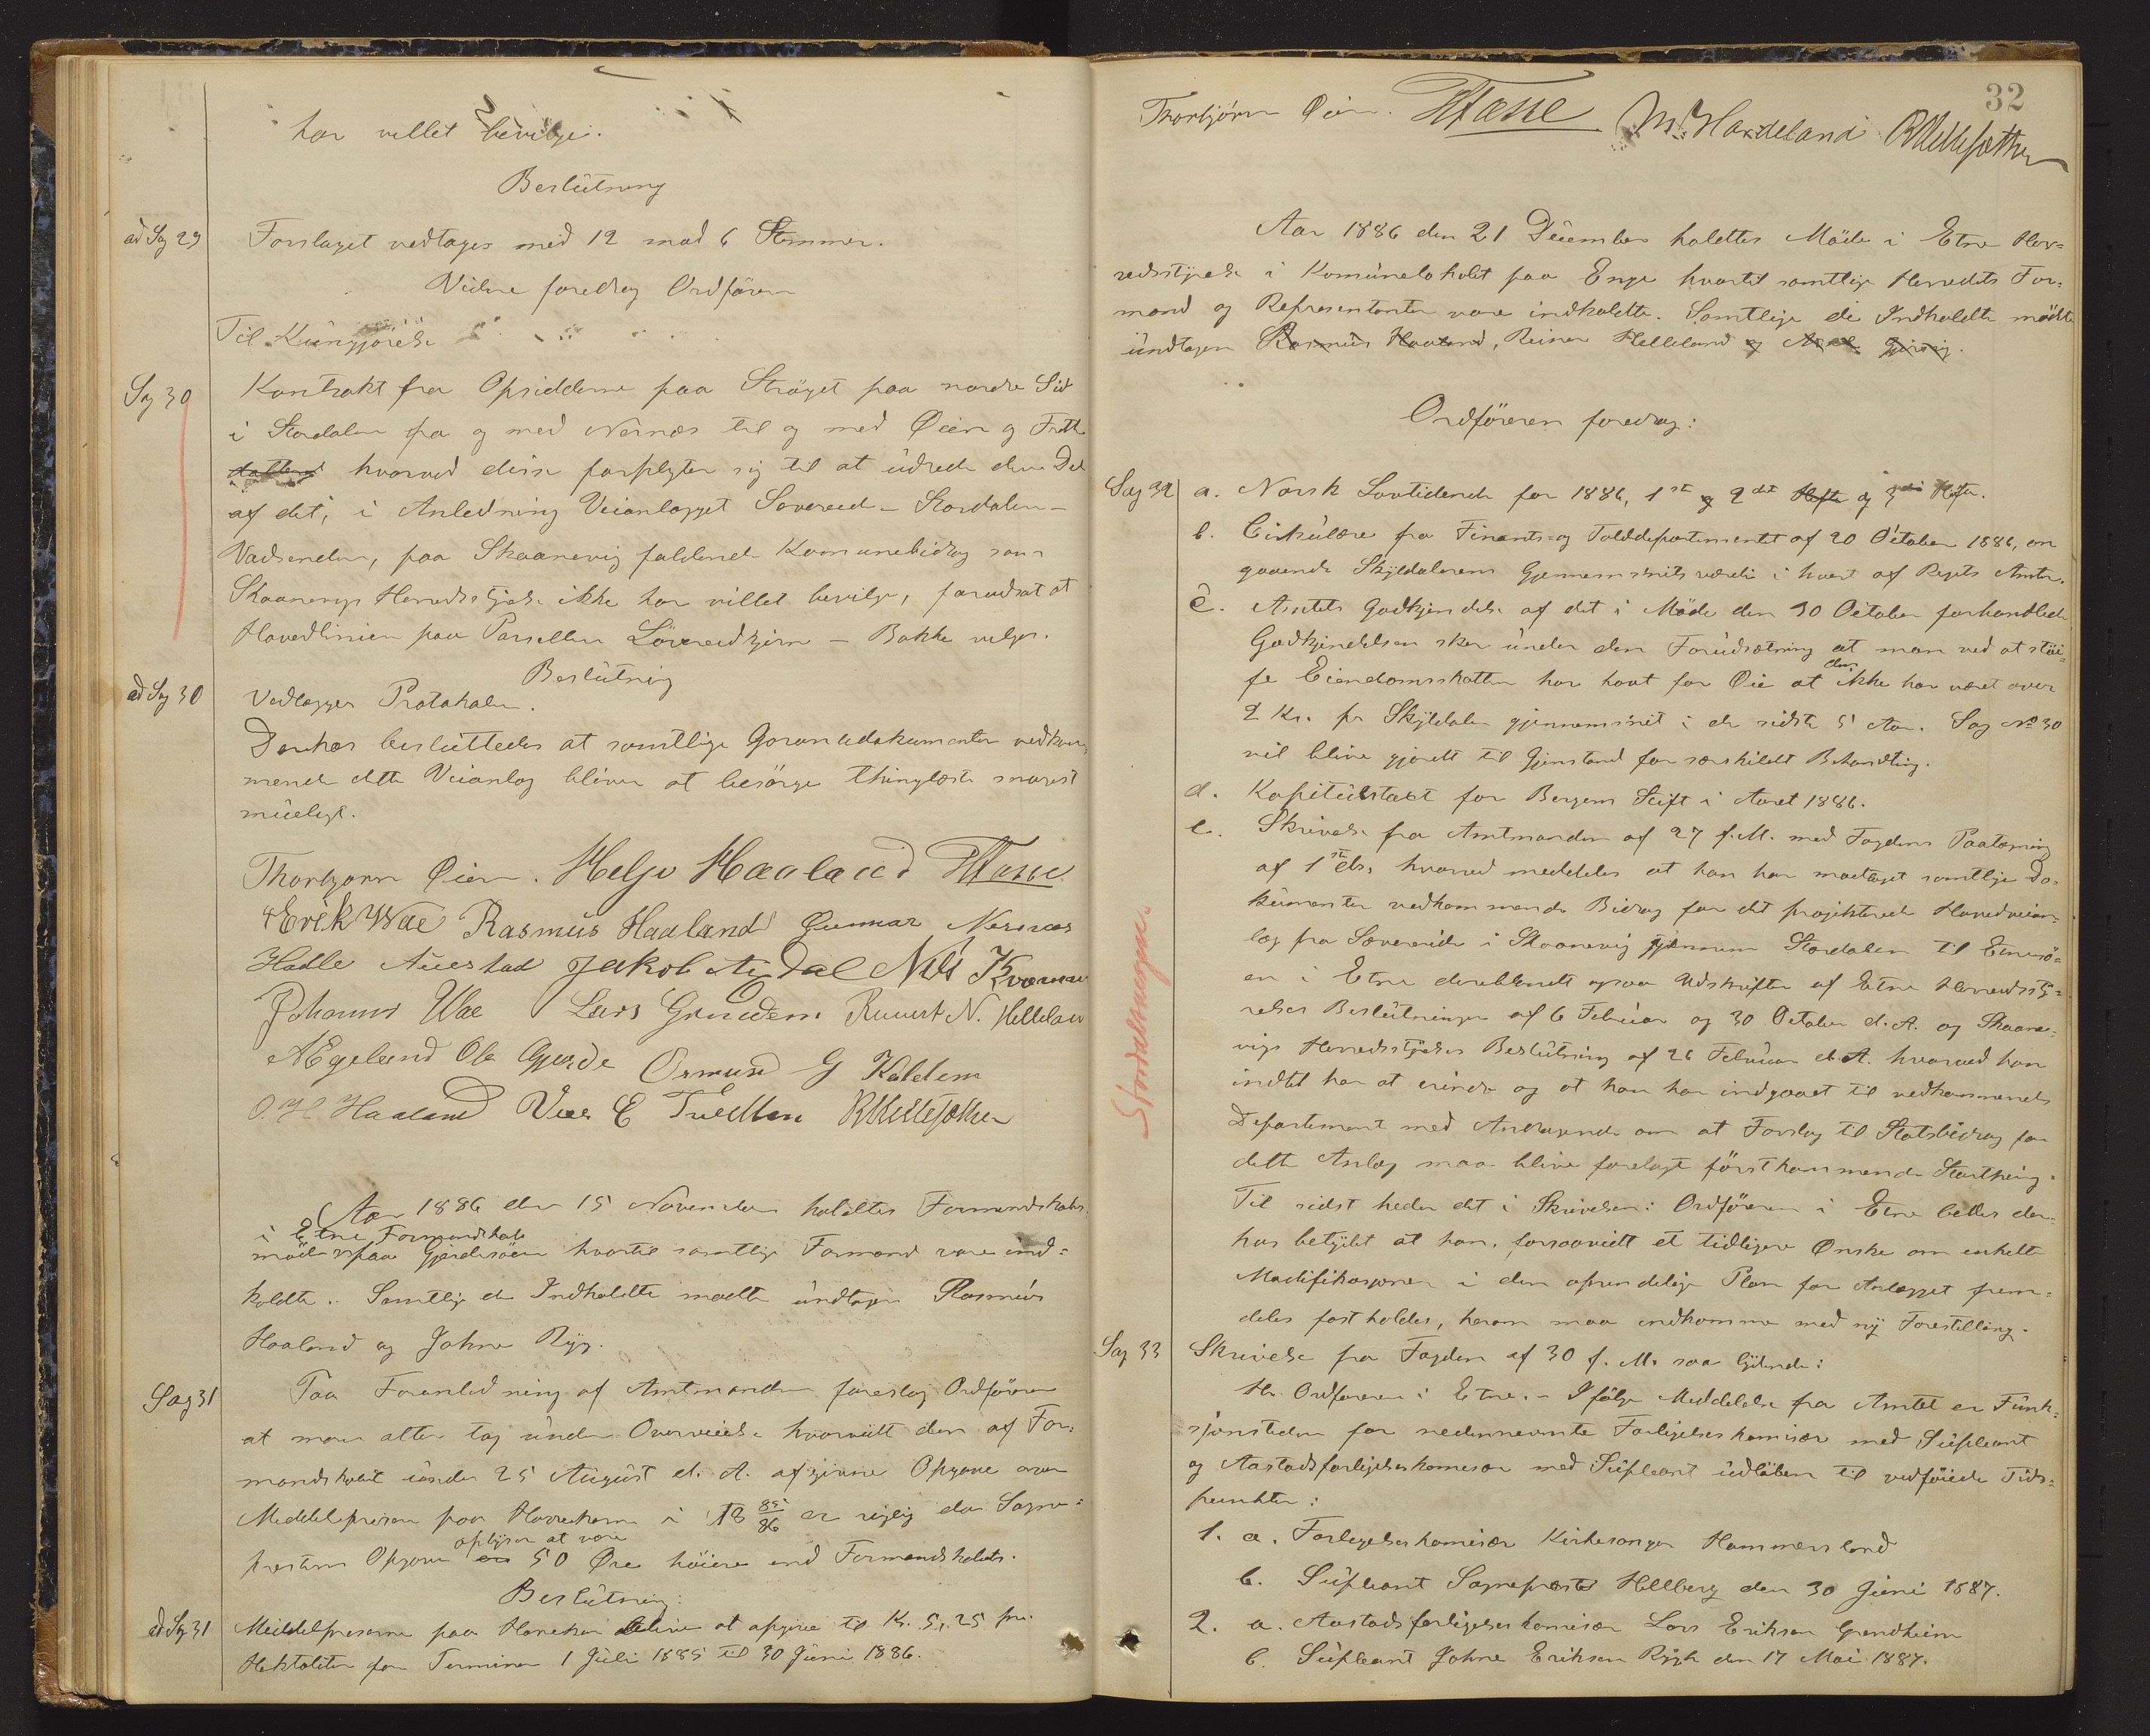 har villet bevilge.
Beslutning
ad Sag 29 Forslaget vedtages med 12 mod 6 Stemmer.
Videre foredrog Ordföreren
Til Kungjörelse
Sag 30 Kontrakt fra Opsidderne paa Ströget paa nordre Side
i Stordalen fra og med Nernæs til og med Øien og
hvorved disse forpligter sig til at udrede den Del
af det, i Anledning Veianlægget Sævereid - Stordalen -
Vadsenden, paa Skaanevig faldende Komunebidrag som
Skaanevigs Herredsstyrelse ikke har villet bevilge, forudsat at
Hovedlinien paa Parsellen Lövereidtjern - Bakke velges.
Beslutning
ad Sag 30 Vedlægges Protokolen.
Derhos besluttedes at samtlige Garantidokumenter vedkom-
mende dette Veianlæg bliver at besörge thinglæste snarest
mueligt.
Thorbjørn Øien. Helje Haaland HFasse
Erik Wae Rasmus Haaland Gunnar Nernæs
Halle Auestad Jakob Aadal Nils Kvernes
Johannes Wae Lars Grindem Reinert N. Helleland
AEgeland Ole Gjerde Ormund G Kaldem
O. H. Haaland E Tveitten RMellesæther
Aar 1886 den 15 November holdtes Formandskabs-
i Etne Formandskab
möde paa Gjerdesöen hvortil samtlige Formænd vare ind-
kaldte. Samtlige de Indkaldte mödte undtagen Rasmus
Haaland og Johne Ryg.
Sag 31 Paa Foranledning af Amtmanden foreslog Ordföreren
at man atter tog under Overveielse hvorvidt den af For-
mandskabet under 25 August d. A. afgivne Opgave over
Middelprisen paa Havrekorn i 18 85/86 er rigtig da Sogne-
oplyses at være
prestens Opgave er 50 Øre höiere end Formandskabets.
Beslutning:
ad Sag 31 Middelpriserne paa Havrekorn bliver at opgive til Kr. 5,25 pr.
Hektoliter for Terminen 1 Juli 1885 til 30 Juni 1886.
32
Thorbjörn Øien. HFasse M. Hardeland RMellesæther
Aar 1886 den 21 December holdtes Möde i Etne Her-
redsstyrelse i Komunelokalet paa Enge hvortil samtlige Herredets For-
mænd og Representanter vare indkaldte. Samtlige de Indkaldte mödte
undtagen Rasmus Haaland, Reiner Helleland og
Ordföreren foredrog:
Sag 32 a. Norsk Lovtidende for 1886, 1ste og 2det Hefte og 3die Hefte.
b. Cirkulære fra Finants- og Tolddepartementet af 20 October 1886, an-
gaaende Skylddalerens Gjennemsnitsværdi i hvert af Rigets Amter.
c. Amtets Godkjendelse af det i Möde den 30 October forhandlede
Godkjendelsen sker under den Forudsætning at man ved at
Eiendomsskatten har havt for Øie at den ikke har været over
2 Kr. pr Skylddaler gjennemsnit i de sidste 5 Aar. Sag No 30
vil blive gjordt til Gjenstand for særskildt Behandling.
d. Kapitelstaxt for Bergens Stift i Aaret 1886.
e. Skrivelse fra Amtmanden af 27 f. M. med Fogdens Paategning
af 1ste ds. hvorved meddeles at han har modtaget samtlige Do-
kumenter vedkommende Bidrag for det projekterede Hovedveian-
læg fra Sævereide i Skaanevig gjennem Stordalen til Etnesjö-
en i Etne deriblandt ogsaa Udskrifter af Etne Herredssty-
relses Beslutninger af 6 Februar og 30 October d. A. og Skaane-
vigs Herredsstyrelses Beslutning af 26 Februar d. A. hvorved han
indtet har at erindre og at han har indgaaet til vedkommende
Departement med Andragende om at Forslag til Statsbidrag for
dette Anlæg maa blive forelagt förstkommende Storthing.
Til sidst heder det i Skrivelsen: Ordföreren i Etne bedes der-
hos betydet at han, forsaavidt et tidligere Ønske om enkelte
Modifikasjoner i den oprindelige Plan for Anlægget frem-
deles fastholdes, herom maa indkomme med ny Forestilling.
Stordalsveien.
Sag 33 Skrivelse fra Fogden af 30 f. M. saa lydende:
Hr. Ordföreren i Etne. - Ifölge Meddelelse fra Amtet er Funk-
sjonstiden for nedennevnte Forligelseskomisær med Supleant
og Aastadsforligelseskomisær med Supleant udlöben til vedföiede Tids-
punkter:
1. a. Forligelseskomisær Kirkesanger Hammersland
b. Supleant Sognepræst Hellberg den 30 Juni 1887.
2. a. Aastadsforligelseskomisær Lars Eriksen Grindheim
b. Supleant Johne Eriksen Rygh den 17 Mai 1887.